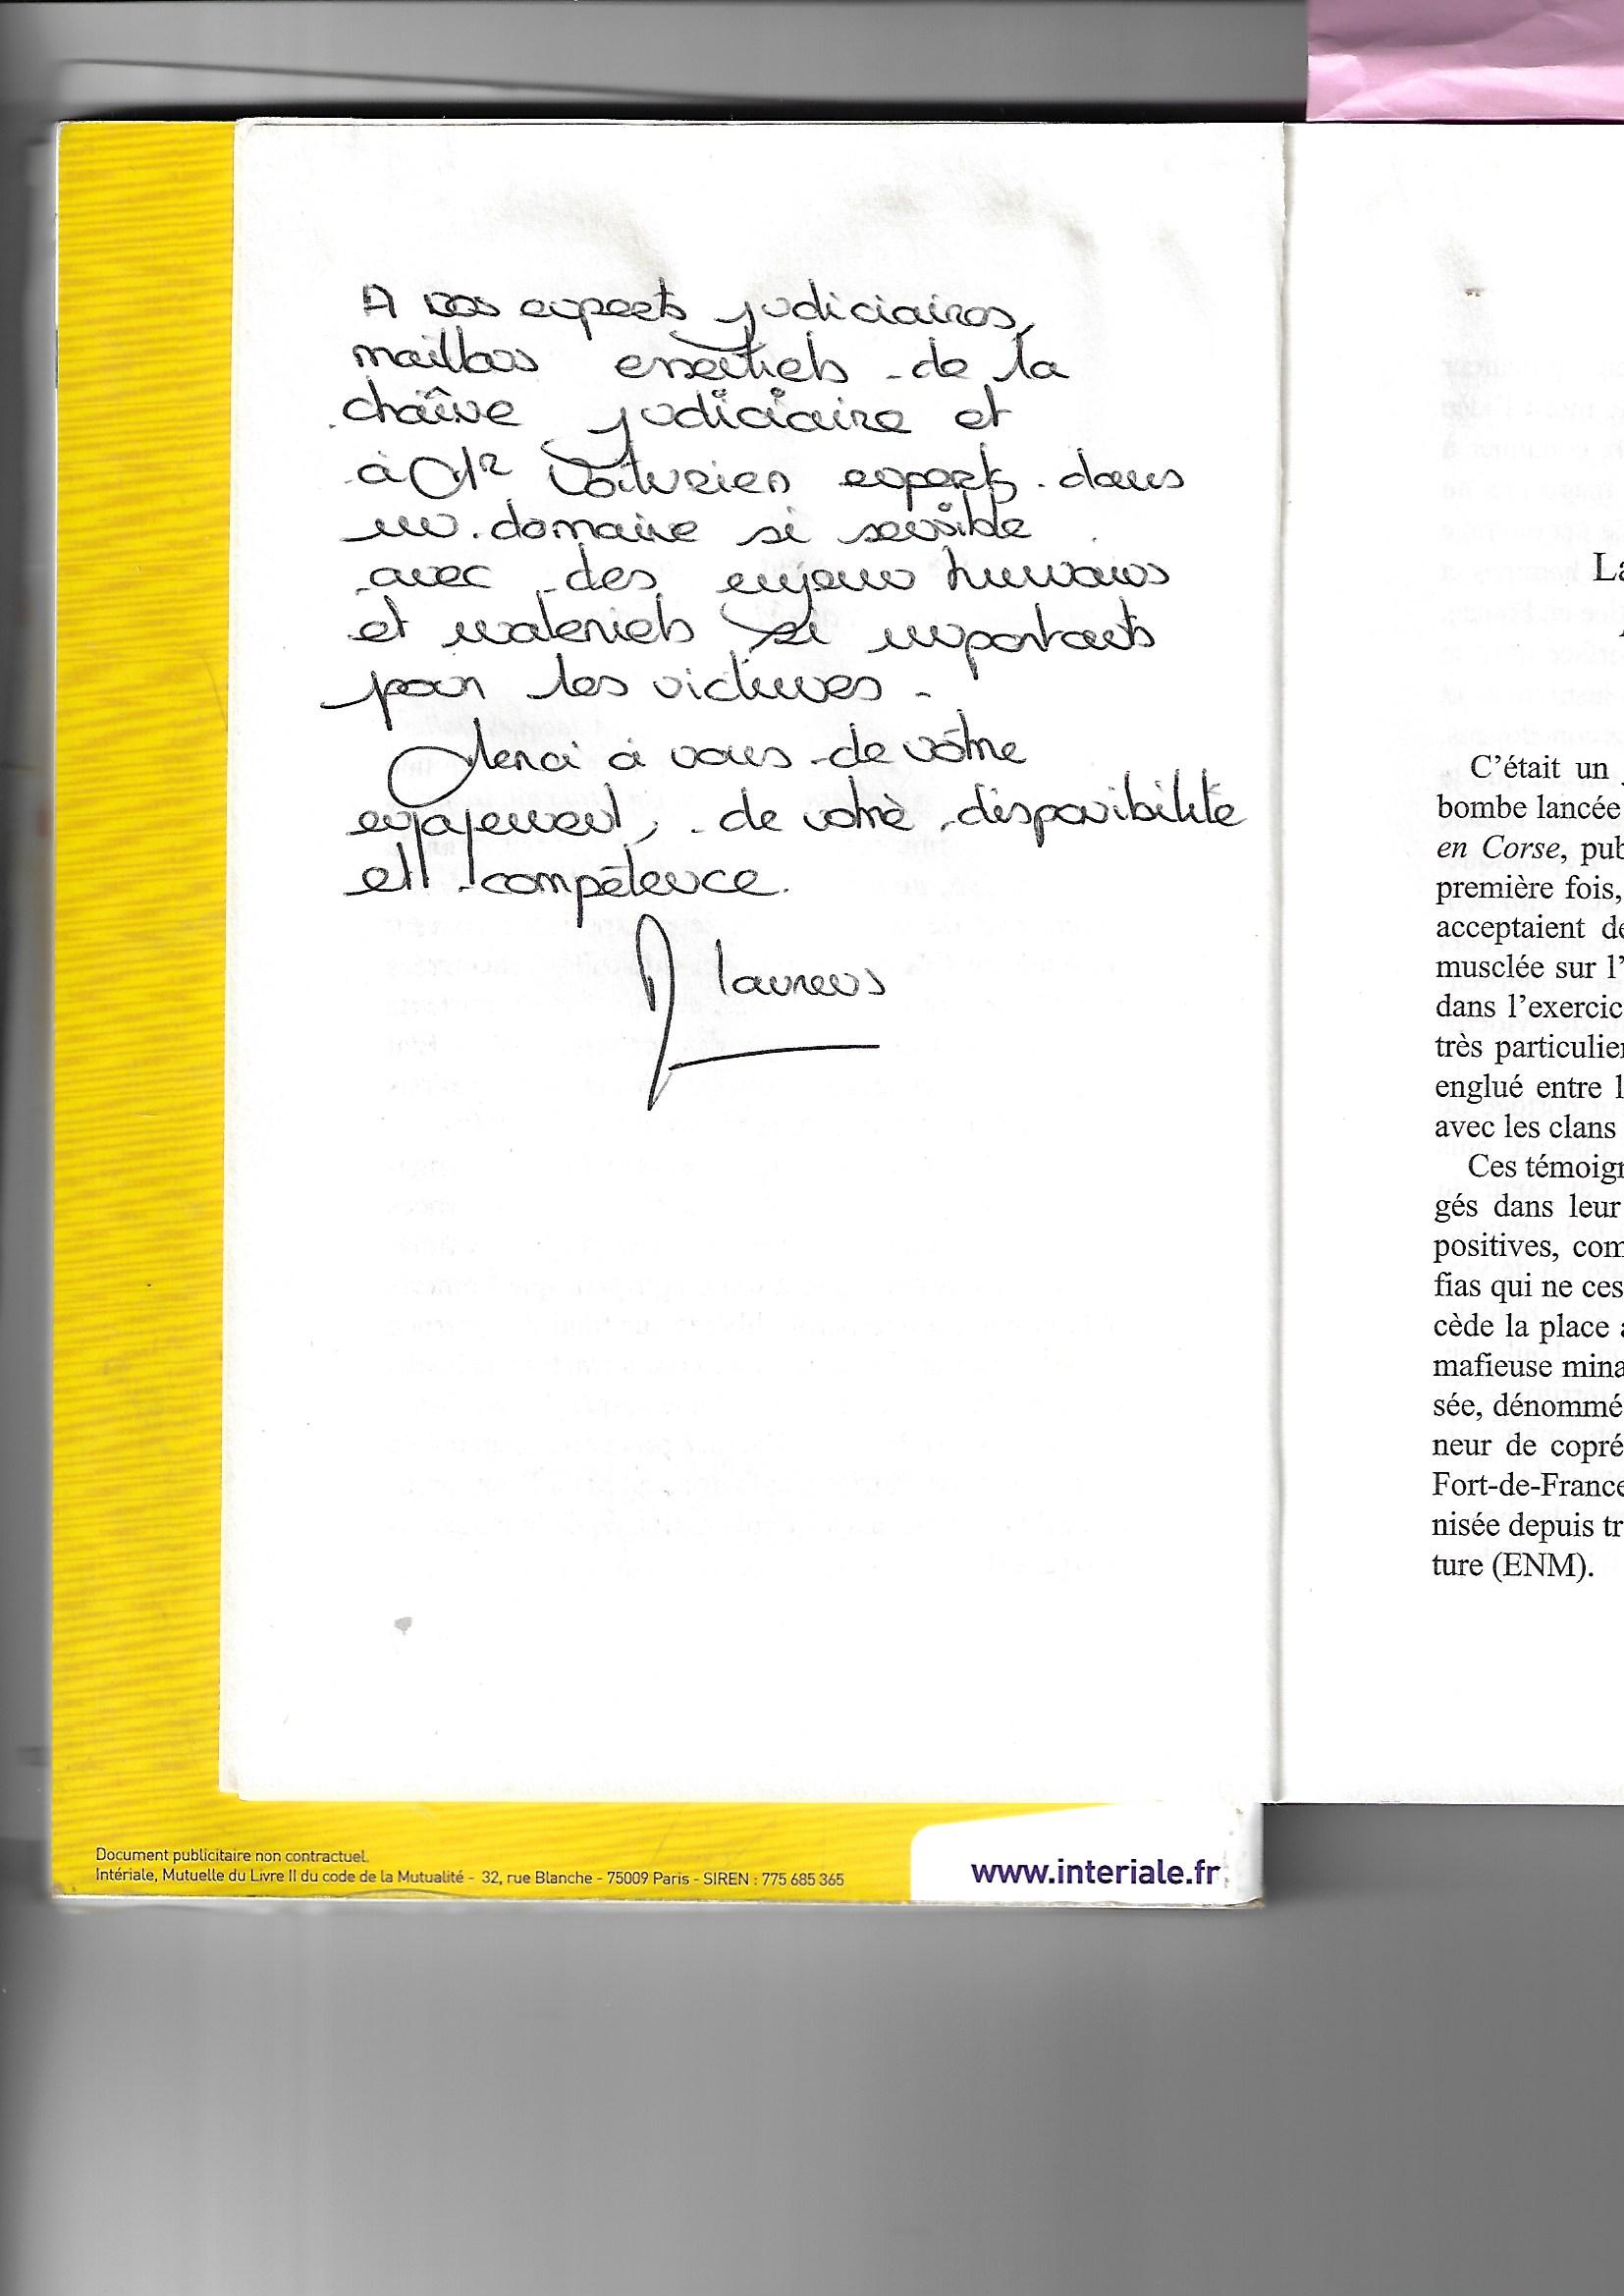 A nos experts judiciaires,
maillons essentiels de la
chaîne judiciaire et
à Mr Voiturien experts dans
un domaine si sensible
avec des enjeux humains
et materiels si importants
pour les victimes.
Merci à vous de vôtre
engagement, de votre disponibilité
et compétence.
laurens
La
C'était un
bombe lancée
en Corse, pub
première fois,
acceptaient de
musclée sur l'
dans l'exercic
très particulier
englué entre l
avec les clans
Ces témoign
gés dans leur
positives, com
fias qui ne ces
cède la place a
mafieuse mina
sée, dénommé
neur de copré
Fort-de-France
nisée depuis tr
ture (ENM).
Document publicitaire non contractuel.
Intériale, Mutuelle du Livre II du code de la Mutualité - 32, rue Blanche - 75009 Paris - SIREN : 775 685 365
www.interiale.fr